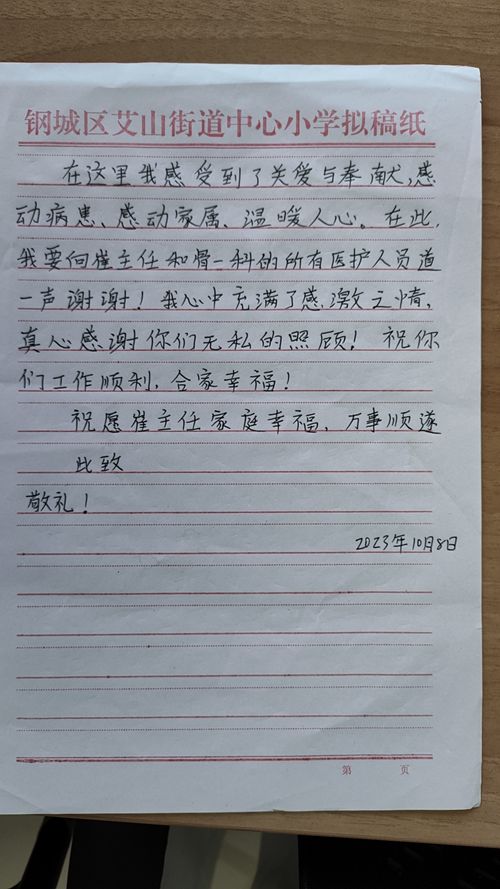 钢城区艾山街道中心小学拟稿纸
在这里我感受到了关爱与奉献,感
动病患、感动家属、温暖人心。在此,
我要向崔主任和骨一科的所有医护人员道
一声谢谢!我心中充满了感激之情,
真心感谢你们无私的照顾!祝你
们工作顺利,合家幸福!
祝愿崔主任家庭幸福,万事顺遂
此致
敬礼!
2023年10月8日
第 页